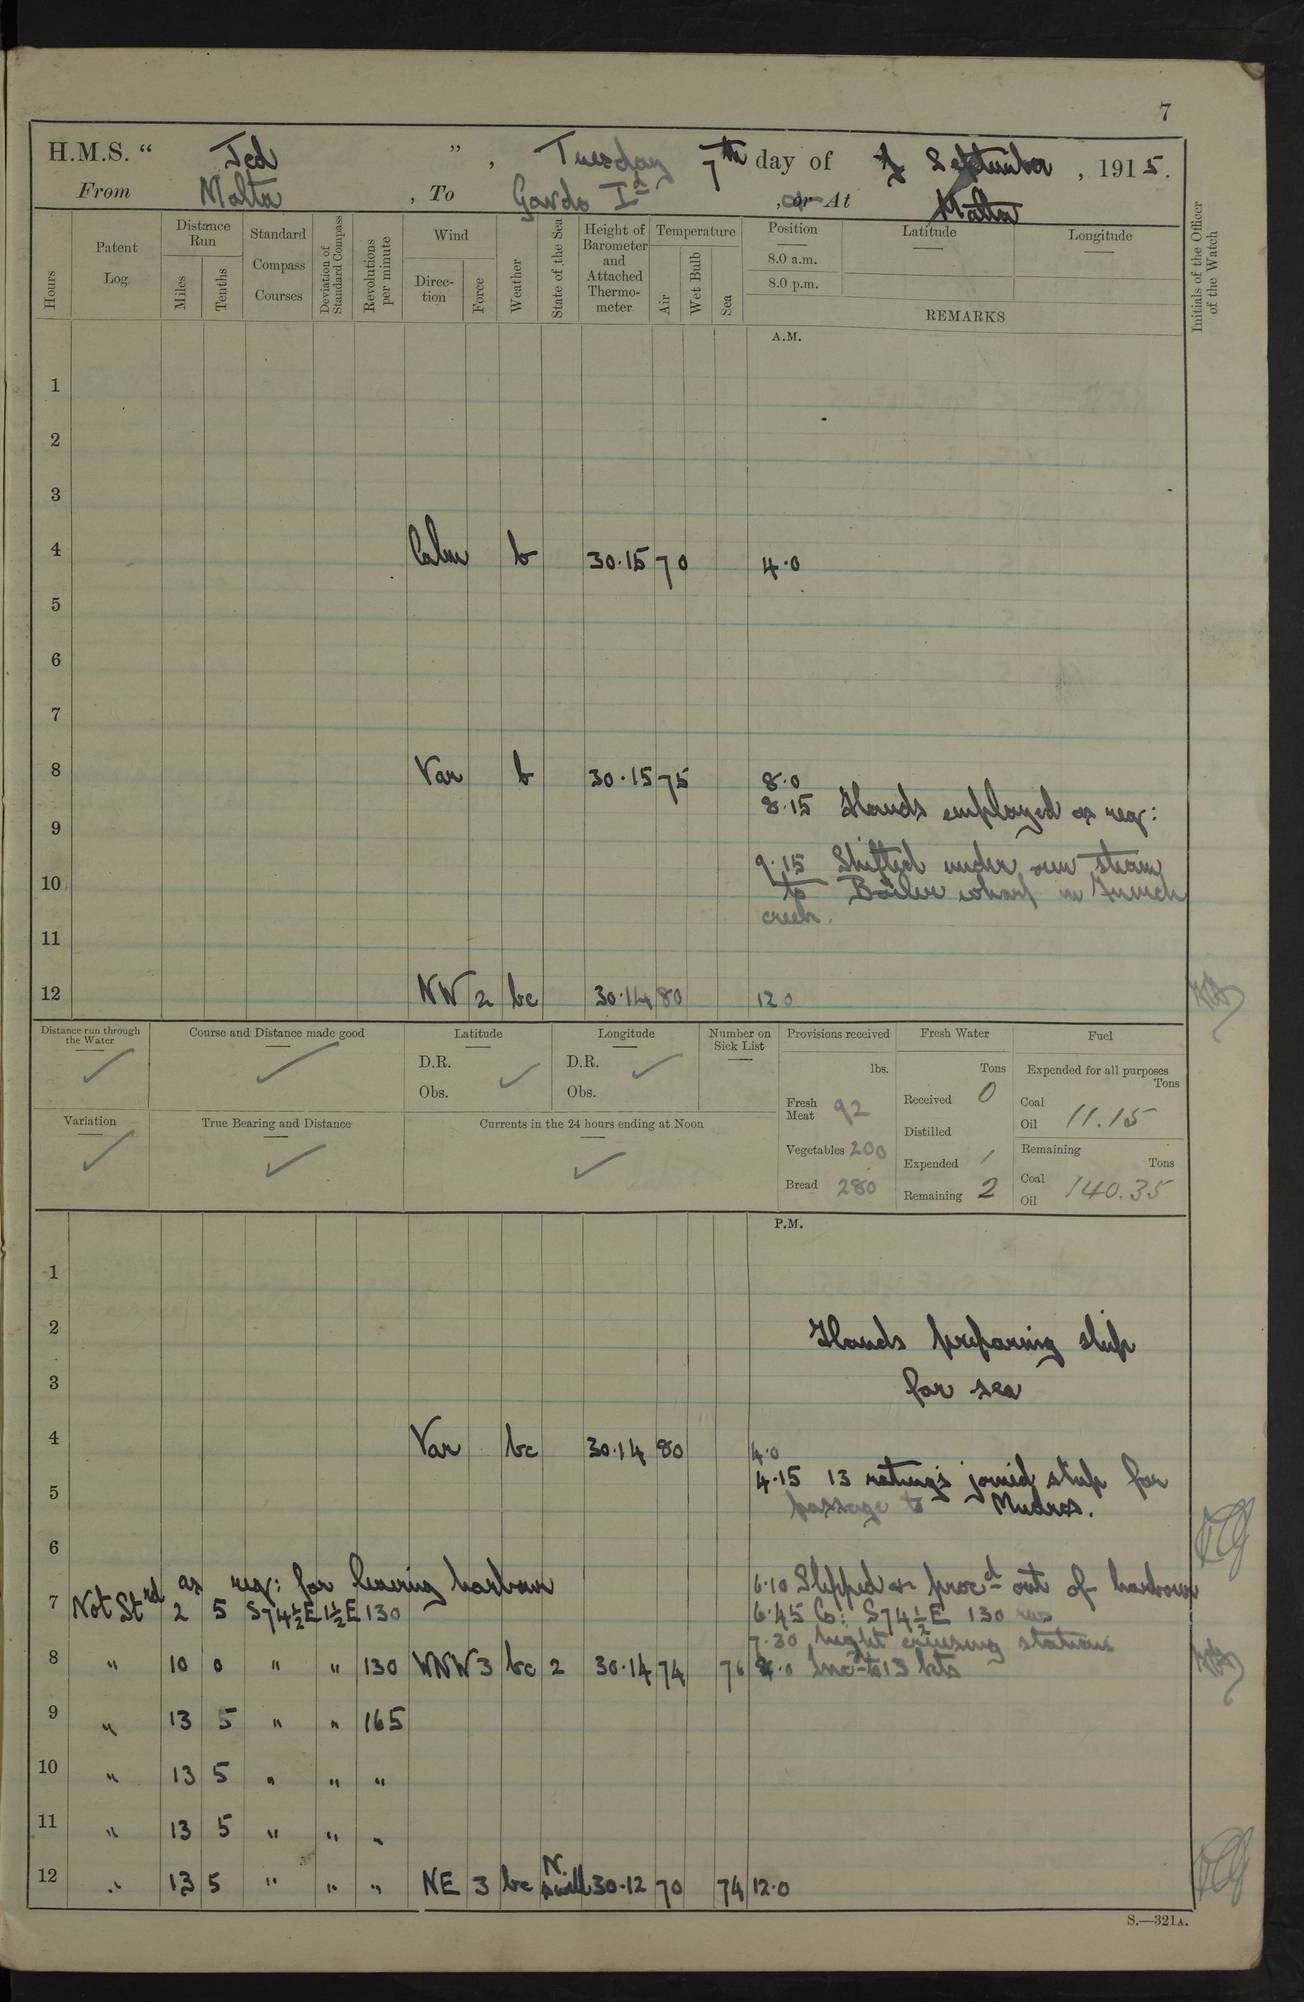 7
H.M.S. " Jed " , Tuesday 7th day of September , 1915.
From Malta , To Gavdo Id , or At Malta
Hours
Patent Log
Distance Run
Miles
Tenths
Standard Compass Courses
Deviation of Standard Compass
Revolutions per minute
Wind
Direction
Force
Weather
State of the Sea
Height of Barometer and Attached Thermometer
Temperature
Air
Wet Bulb
Sea
Position
8.0 a.m.
8.0 p.m.
Latitude
Longitude
REMARKS
Initials of the Officer of the Watch
A.M.
1
2
3
4 Calm b 30.15 70 4.0
5
6
7
8 Var b 30.15 75 8.0
8.15 Hands employed as req:
9
9.15 Shifted under own steam
10 to Boiler wharf in French
creek.
11
12 NW 2 bc 30.14 80 12 0
Distance run through the Water
Course and Distance made good
Latitude
D.R.
Obs.
Longitude
D.R.
Obs.
Number on Sick List
Provisions received
lbs.
Fresh Meat 92
Vegetables 200
Bread 280
Fresh Water
Tons
Received 0
Distilled
Expended 1
Remaining 2
Fuel
Expended for all purposes
Tons
Coal
Oil 11.15
Remaining
Tons
Coal
Oil 140.35
Variation
True Bearing and Distance
Currents in the 24 hours ending at Noon
P.M.
1
2 Hands preparing ship
3 for sea
4 Var bc 30.14 80 4.0
4.15 13 ratings joined ship for
5 passage to Mudros.
6
as req: for leaving harbour 6.10 Slipped & procd out of harbour
7 Not Strd 2 5 S74½E 1½E 130 6.45 Co: S74½E 130 revs
7.30 Night cruising stations
8 " 10 0 " " 130 WNW 3 bc 2 30.14 74 76 8.0 Incd to 13 kts
9 " 13 5 " " 165
10 " 13 5 " " "
11 " 13 5 " " "
12 " 13 5 " " " NE 3 bc N. swell 30.12 70 74 12.0
S.—321A.